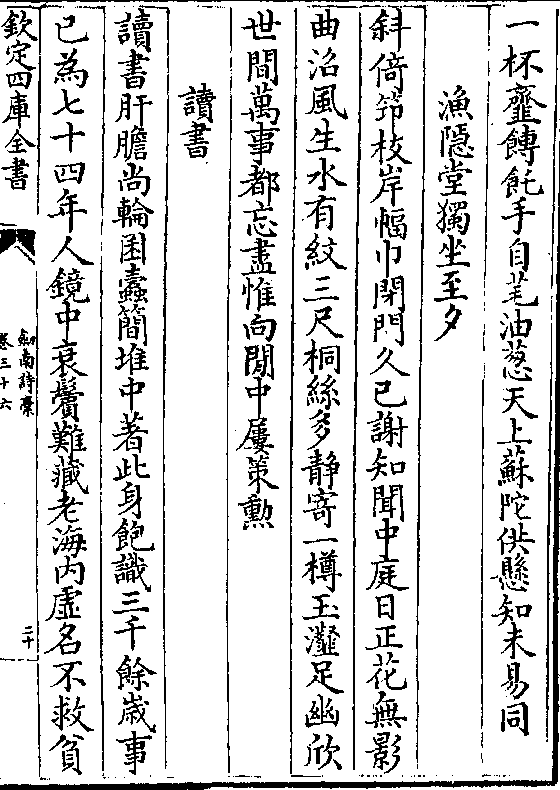 一杯虀餺飥手自芼油葱天上蘇陀供懸知未易同
漁隱堂獨坐至夕
斜倚笻枝岸幅巾閉門久已謝知聞中庭日正花無影
曲沼風生水有紋三尺桐絲多静寄一樽玉瀣足幽欣
世間萬事都忘盡惟向閒中屢策勲
讀書
讀書肝膽尚輪囷蠹簡堆中著此身飽識三千餘歲事
已為七十四年人鏡中衰鬢難藏老海内虛名不救貧
欽定四庫全書
劒南詩稾
卷三十六
二十